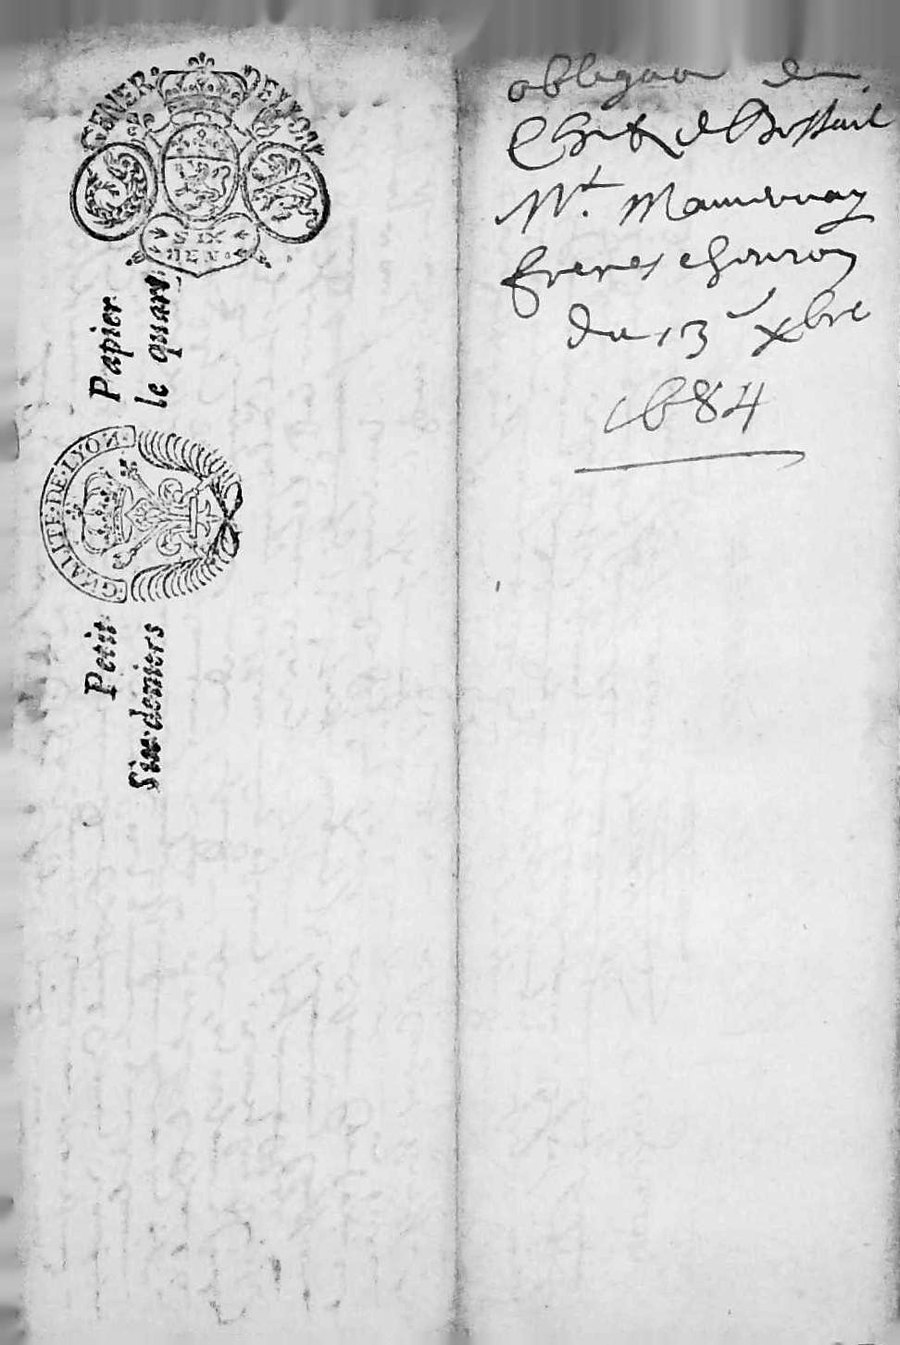 GENER. DE LYON
SIX
DEN.
Papier
le quart
GNALITE·DE·LYON·
Petit
Six·deniers
obligaon de
Mr.
freres
du 13 xbre
1684